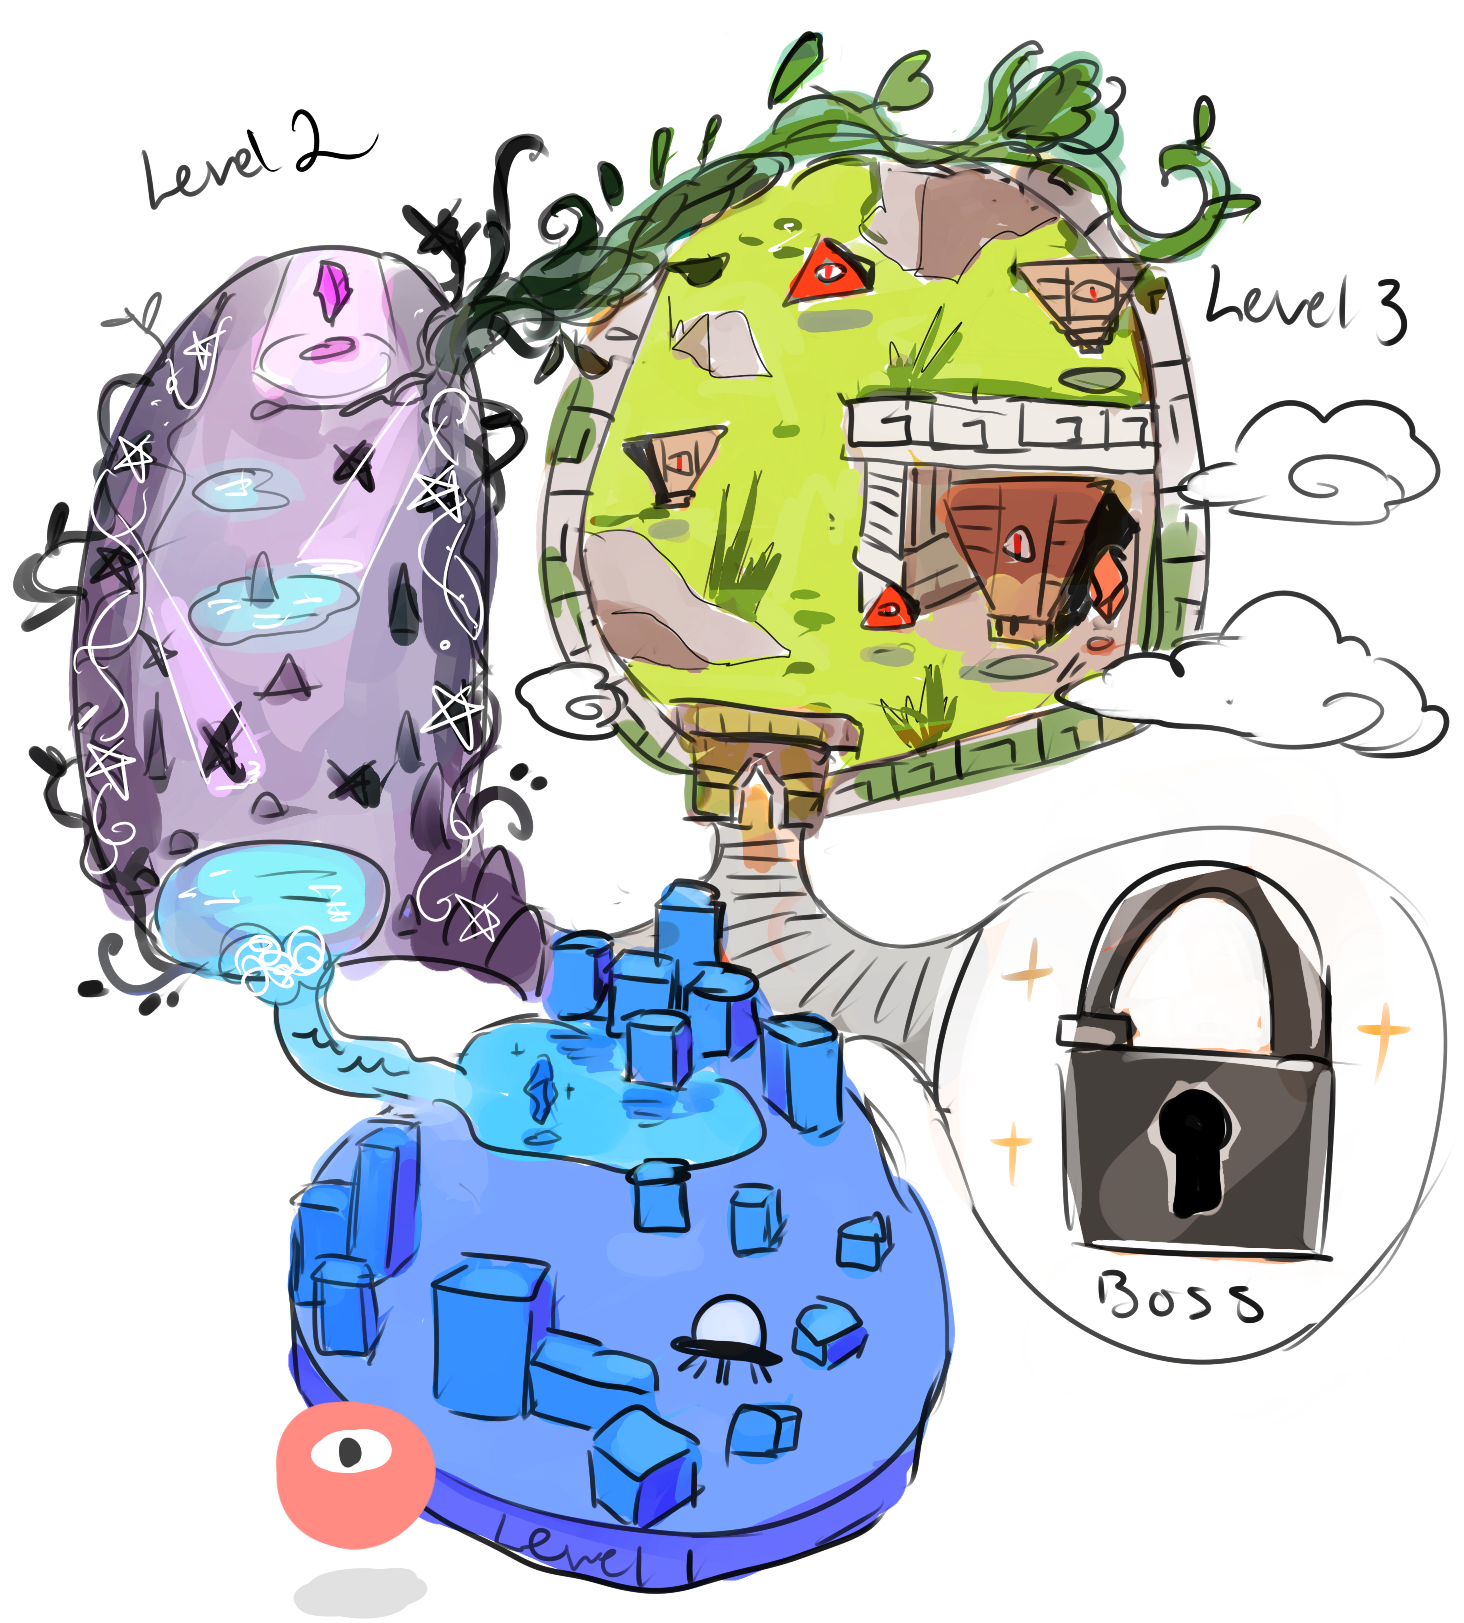 Level 2
Level 3
Boss
Level 1